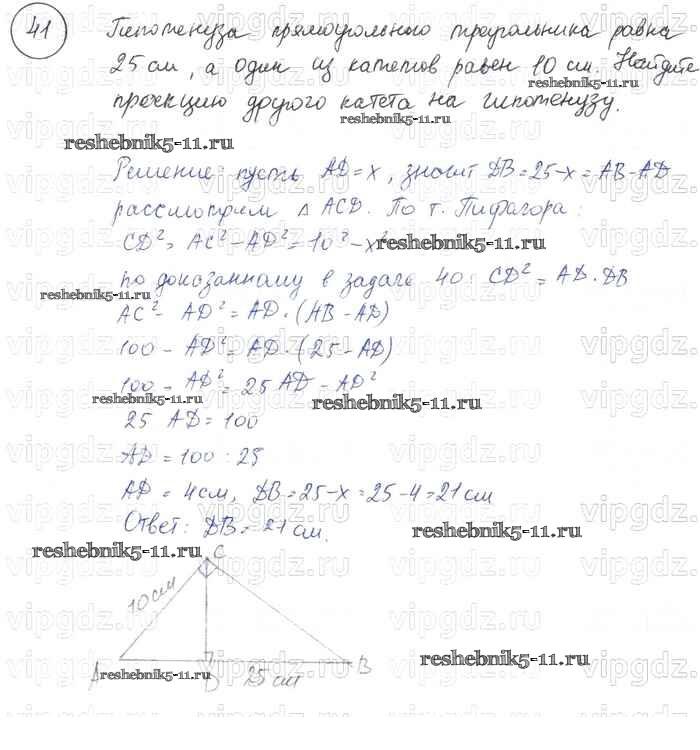 41 Гипотенуза прямоугольного треугольника равна
25 см, а один из катетов равен 10 см. Найдите
reshebnik5-11.ru
проекцию другого катета на гипотенузу.
reshebnik5-11.ru
reshebnik5-11.ru
Решение: пусть AD = x, значит DB = 25 - x = AB - AD
рассмотрим △ ACD. По т. Пифагора:
CD² = AC² - AD² = 10² - x²
reshebnik5-11.ru
по доказанному в задаче 40: CD² = AD · DB
reshebnik5-11.ru
AC² - AD² = AD · (AB - AD)
100 - AD² = AD · (25 - AD)
100 - AD² = 25 AD - AD²
reshebnik5-11.ru
reshebnik5-11.ru
25 AD = 100
AD = 100 : 25
AD = 4 см, DB = 25 - x = 25 - 4 = 21 см
Ответ: DB = 21 см.
reshebnik5-11.ru
reshebnik5-11.ru
C
10 см
A D B
reshebnik5-11.ru
reshebnik5-11.ru
25 см
vipgdz.ru